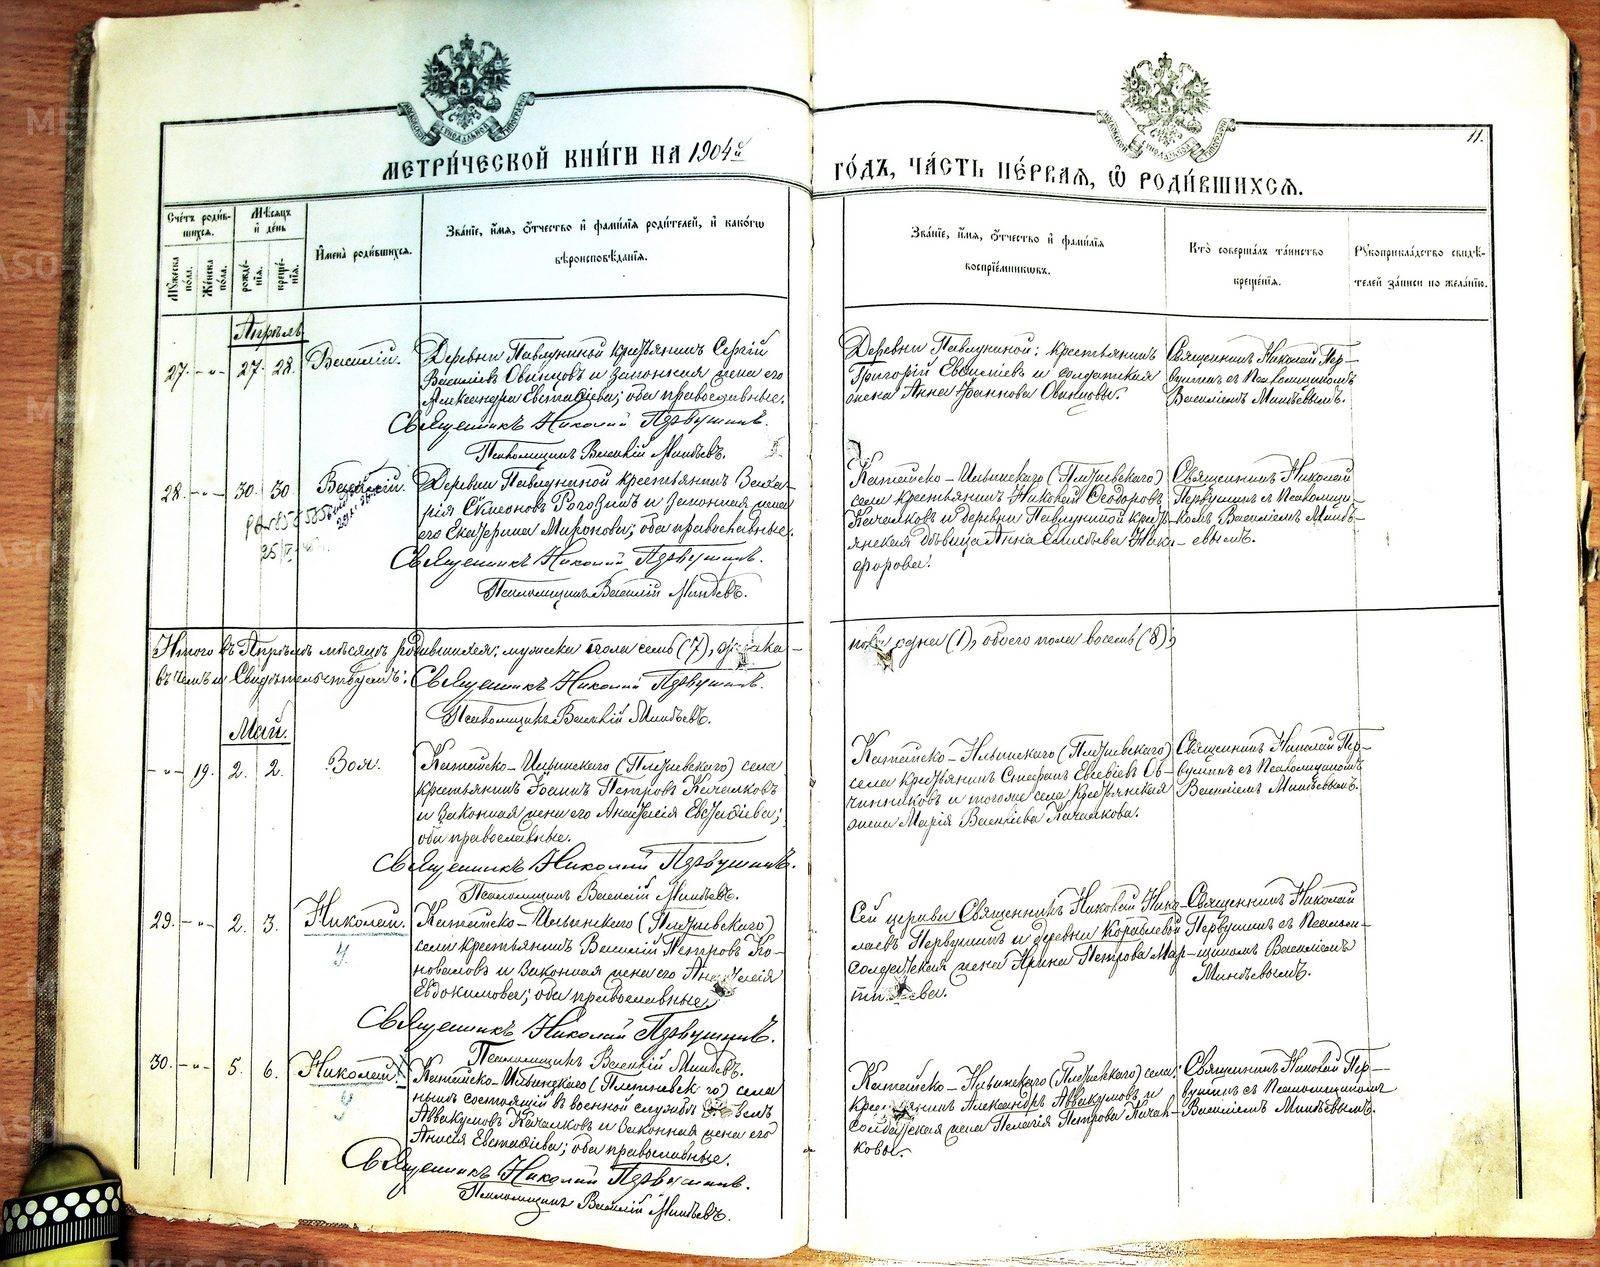 МЕТРИЧЕСКОЙ КНИГИ НА 1904й
ГОДЪ, ЧАСТЬ ПЕРВАЯ, Ѿ РОДИВШИХСЯ.
11.
Счетъ родив-
шихся.
Мѣсяцъ
и день
Имена родившихся.
Званіе, имя, отчество и фамилія родителей, и какогѡ
вѣроисповѣданія.
Мужеска пола.
Женска пола.
рожде-
нія.
креще-
нія.
Званіе, имя, отчество и фамилія
воспріемниковъ.
Кто совершалъ таинство
крещенія.
Рукоприкладство свидѣ-
телей записи по желанію.
Апрѣль
27. - „ - 27. 28. Василій. Деревни Павлуниной крестьянинъ Сергій
Василіевъ Овчинцовъ и законная жена его
Александра Евстафіева; оба православные.
Священникъ Николай Первушинъ.
Псаломщикъ Василій Минѣевъ.
Деревни Павлуниной: крестьянинъ
Григорій Василіевъ и солдатская
жена Анна Іоаннова Овчинцовы.
Священникъ Николай Пер-
вушинъ съ Псаломщикомъ
Василіемъ Минѣевымъ.
28. - „ - 30. 30. Василій. Деревни Павлуниной крестьянинъ Заха-
рія Симеоновъ Рогозинъ и законная жена
его Екатерина Миронова; оба православные.
Священникъ Николай Первушинъ.
Псаломщикъ Василій Минѣевъ.
Катайско-Ильинскаго (Плотневскаго)
села крестьянинъ Николай Ѳеодоровъ
Качалковъ и деревни Павлуниной крестъ-
янская дѣвица Анна Елисѣева Ники-
форова.
Священникъ Николай
Первушинъ съ Псаломщи-
комъ Василіемъ Минѣ-
евымъ.
Итого въ Апрѣлѣ мѣсяцѣ родившихся: мужска пола семь (7), женска-
пола одна (1), обоего пола восемь (8);
въ чемъ и Свидѣтельствуемъ: Священникъ Николай Первушинъ.
Псаломщикъ Василій Минѣевъ.
Май.
- „ - 19. 2. 2. Зоя. Катайско-Ильинскаго (Плотневскаго) села
крестьянинъ Іоаннъ Петровъ Качалковъ
и законная жена его Анастасія Евстафіева;
оба православные.
Священникъ Николай Первушинъ.
Псаломщикъ Василій Минѣевъ.
Катайско-Ильинскаго (Плотневскаго)
села крестьянинъ Стефанъ Евсевіевъ Ов-
чинниковъ и тогоже села крестьянская
жена Марія Василіева Качалкова.
Священникъ Николай Пер-
вушинъ съ Псаломщикомъ
Василіемъ Минѣевымъ.
29. - „ - 2. 3. Николай. Катайско-Ильинскаго (Плотневскаго)
села крестьянинъ Василій Петровъ Ко-
новаловъ и законная жена его Анастасія
Евдокимова; оба православные.
Священникъ Николай Первушинъ.
Псаломщикъ Василій Минѣевъ.
Сей церкви Священникъ Николай Нико-
лаевъ Первушинъ и деревни Кораблевой
солдатская жена Ирина Петрова Мар-
Священникъ Николай
Первушинъ съ Псалом-
щикомъ Василіемъ
Минѣевымъ.
30. - „ - 5. 6. Николай. Катайско-Ильинскаго (Плотневскаго) села
нынѣ состоящій въ военной службѣ
Аввакумовъ Качалковъ и законная жена его
Анисія Евстафіева; оба православные.
Священникъ Николай Первушинъ.
Псаломщикъ Василій Минѣевъ.
Катайско-Ильинскаго (Плотневскаго) села:
крестьянинъ Александръ Аввакумовъ и
солдатская жена Пелагія Петрова Качал-
ковы.
Священникъ Николай Пер-
вушинъ съ Псаломщикомъ
Василіемъ Минѣевымъ.